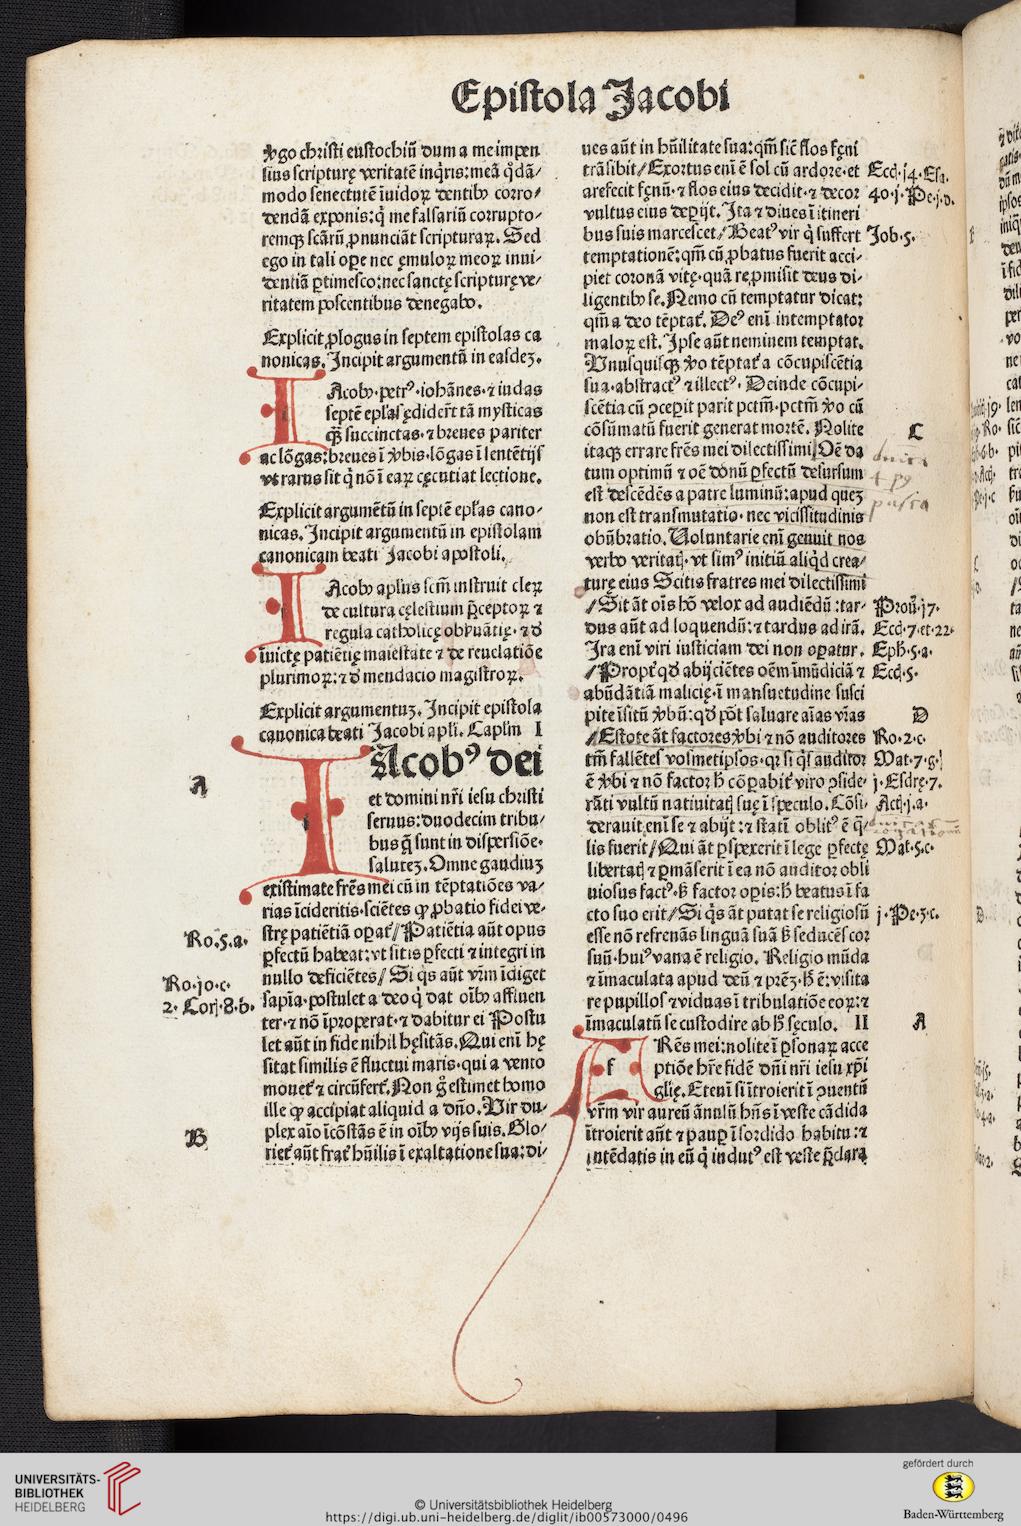 Epistola Jacobi
ꝟgo christi eustochiū dum a me impen
sius scripturę veritatē inq̇ris: meā q̇dā/
modo senectutē īuidoꝝ dentibꝰ corro/
dendā exponis: q̇ me falsariū corrupto/
remqꝫ scārū ꝓnunciāt scripturaꝝ. Sed
ego in tali oꝑe nec ęmuloꝝ meoꝝ inui/
dentiā ꝑtimesco: nec sanctę scripturę ve/
ritatem poscentibus denegabo.
Explicit ꝓlogus in septem epistolas ca
nonicas. Incipit argumentū in easdeꝫ.
IAcobꝰ. petrꝰ. iohānes. ⁊ iudas
septē epl̄as ędidert̄ tā mysticas
qꝫ̄ succinctas. ⁊ breues pariter
ac lōgas: breues ī ꝟbis. lōgas ī sentētijs
vt rarus sit q̇ nō ī eaꝝ cęcutiat lectione.
Explicit argumētū in septē epl̄as cano/
nicas. Incipit argumentū in epistolam
canonicam beati Jacobi apostoli.
IAcobꝰ apl̄us scm̄ instruit cleꝝ
de cultura cęlestium p̄ceptoꝝ ⁊
regula catholicę obẜuātię. ⁊ d̄
īuictę patiētię maiestate ⁊ de reuelatiōe
plurimoꝝ: ⁊ d̄ mendacio magistroꝝ.
Explicit argumentuꝫ. Incipit epistola
canonica beati Jacobi apl̄i. Caplm̄ I
A
IAcobꝰ dei
et domini nr̄i iesu christi
seruus: duodecim tribu/
bus q̄ sunt in disꝑsiōe.
saluteꝫ. Omne gaudiuꝫ
existimate frēs mei cū in tēptatiōes va/
rias īcideritis. sciētes ꝙ ꝓbatio fidei ve/
Ro.5.a.
strę patiētiā oꝑat̄/ Patiētia aūt opus
ꝑfectū habeat: vt sitis ꝑfecti ⁊ integri in
Ro.jo.c.
nullo deficiētes/ Si q̇s aūt vr̄m īdiget
2. Corj.8.b.
sapīa. postulet a deo q̇ dat oībꝰ affluen
ter. ⁊ nō īproperat. ⁊ dabitur ei Postu
let aūt in fide nihil hęsitās. Qui enī hę
sitat similis ē fluctui maris. qui a vento
mouet̄ ⁊ circūfert̄. Non g̊ estimet homo
ille ꝙ accipiat aliquid a dn̄o. Vir du/
B
plex aīo īcōstās ē in oībꝰ vijs suis. Glo/
riet̄ aūt frat̄ hūilis ī exaltatione sua: di/
ues aūt in hūilitate sua: qm̄ sic̄ flos fęni
trāsibit/ Exortus enī ē sol cū ardore. et
Eccl̄.j4. Esa.
arefecit fęnū. ⁊ flos eius decidit. ⁊ decor
40. j. Pe.j.d.
vultus eius deꝑijt. Ita ⁊ diues ī itineri
bus suis marcescet/ Beatꝰ vir q̇ suffert
Job.5.
temptationē: qm̄ cū ꝓbatus fuerit acci/
piet coronā vitę. quā reꝓmisit deus di/
ligentibꝰ se. Nemo cū temptatur dicat:
qm̄ a deo tēptat̄. Deꝰ enī intemptator
maloꝝ est. Ipse aūt neminem temptat.
Vnusquisqꝫ ꝟo tēptat̄ a cōcupiscētia
sua. abstractꝰ ⁊ illectꝰ. Deinde cōcupi/
scētia cū ꝯceꝑit parit pctm̄. pctm̄ ꝟo cū
cōsūmatū fuerit generat mortē. Nolite
C
itaqꝫ errare frēs mei dilectissimi/ Oē da
tum optimū ⁊ oē donū ꝑfectū desursum
est descēdēs a patre luminū: apud queꝫ
non est transmutatio. nec vicissitudinis
obūbratio. Uoluntarie enī genuit nos
verbo veritatꝭ. vt simꝰ initiū aliq̇d crea/
turę eius Scitis fratres mei dilectissimi
/ Sit āt oīs hō velox ad audiēdū: tar/
Prou̇.j7.
dus aūt ad loquendū: ⁊ tardus ad irā.
Eccl̄.7.et.22.
Ira enī viri iusticiam dei non oꝑatur.
Eph̄.5.a.
/ Propt̄ qd̄ abijciētes oēm īmūdiciā ⁊
Eccl̄.5.
abūdātiā malicię. ī mansuetudine susci
pite īsitū ꝟbū: qd̄ pōt saluare aīas vr̄as
D
/ Estote āt factores ꝟbi ⁊ nō auditores
Ro.2.c.
tm̄ fallētes vosmetipsos. qꝛ si q̇s auditor
Mat.7.g.
ē ꝟbi ⁊ nō factor h̄ cōꝑabit̄ viro ꝯside/
j. Esdrę.7.
rāti vultū natiuitatꝭ suę ī speculo. Cōsi/
Act̄.j.a.
derauit enī se ⁊ abijt: ⁊ statī oblitꝰ ē q̄/
lis fuerit/ Qui āt ꝑspexerit ī lege ꝑfectę
Mat.5.c.
libertatꝭ ⁊ ꝑmāserit ī ea nō auditor obli
uiosus factꝰ. s̄ factor oꝑis: h̄ beatus ī fa
cto suo erit/ Si q̇s āt putat se religiosū
j. Pe.3.c.
esse nō refrenās linguā suā s̄ seducēs cor
suū. huiꝰ vana ē religio. Religio mūda
⁊ īmaculata apud deū ⁊ prēꝫ. h̄ ē: visita
re pupillos ⁊ viduas ī tribulatiōe eoꝝ: ⁊
īmaculatū se custodire ab h̄ sęculo. II
A
FRēs mei: nolite ī ꝑsonaꝝ acce
ptiōe hr̄e fidē dn̄i nr̄i iesu xp̄i
glīę. Etenī si ītroierit ī ꝯuentū
vr̄m vir aureū ānulū hn̄s ī veste cādida
ītroierit aūt ⁊ pauꝑ ī sordido habitu: ⁊
intēdatis in eū q̇ indutꝰ est veste p̄clara
UNIVERSITÄTS-
BIBLIOTHEK
HEIDELBERG
© Universitätsbibliothek Heidelberg
https://digi.ub.uni-heidelberg.de/diglit/ib00573000/0496
gefördert durch
Baden-Württemberg